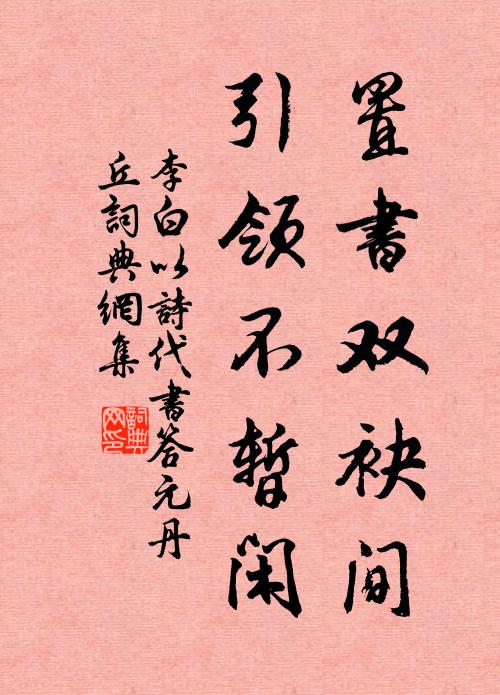 置書双袂间
引领不暫闲
李白以詩代書答元丹
丘詞典網集
詞典网印